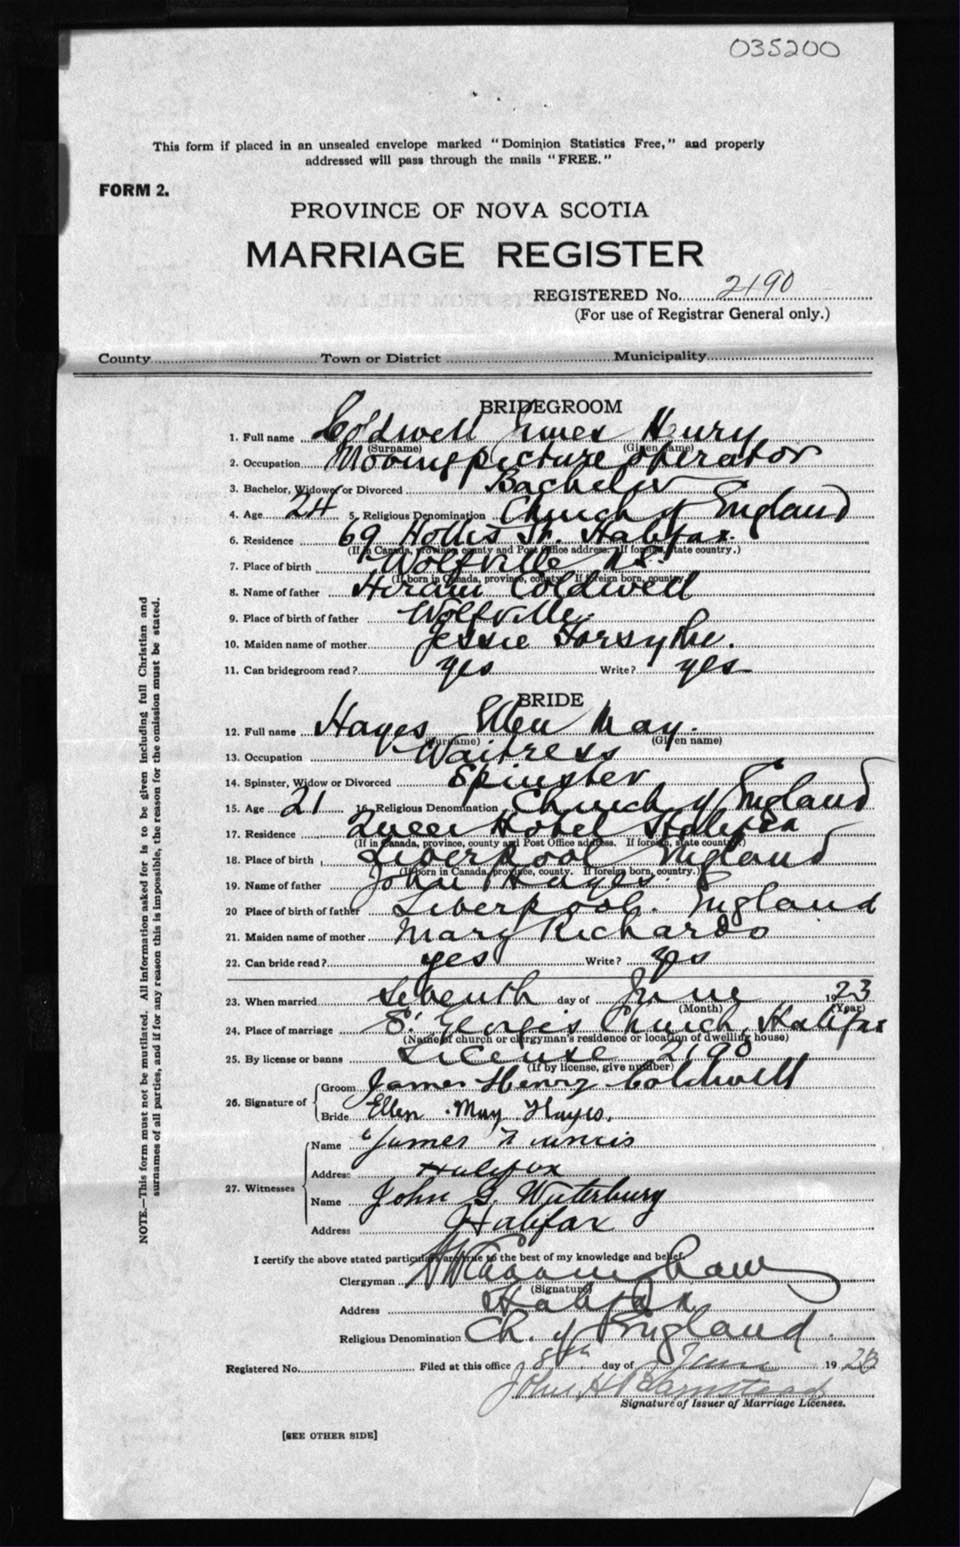 035200
This form if placed in an unsealed envelope marked "Dominion Statistics Free," and properly
addressed will pass through the mails "FREE."
FORM 2.
PROVINCE OF NOVA SCOTIA
MARRIAGE REGISTER
REGISTERED No. 2190
(For use of Registrar General only.)
County Town or District Municipality
BRIDEGROOM
1. Full name Coldwell James Henry
(Surname) (Given name)
2. Occupation Moving picture operator
3. Bachelor, Widower or Divorced Bachelor
4. Age 24 5. Religious Denomination Church of England
6. Residence 69 Hollis St. Halifax.
(If in Canada, province, county and Post Office address. If foreign, state country.)
7. Place of birth Wolfville N.S.
(If born in Canada, province, county. If foreign born, country.)
8. Name of father Hiram Coldwell
9. Place of birth of father Wolfville
10. Maiden name of mother Jessie Forsythe.
11. Can bridegroom read? yes Write? yes
BRIDE
12. Full name Hayes Ellen May.
(Surname) (Given name)
13. Occupation Waitress
14. Spinster, Widow or Divorced Spinster
15. Age 21 16. Religious Denomination Church of England
17. Residence Queen Hotel Halifax
(If in Canada, province, county and Post Office address. If foreign, state country.)
18. Place of birth Liverpool England
(If born in Canada, province, county. If foreign born, country.)
19. Name of father John Hayes.
20 Place of birth of father Liverpool. England
21. Maiden name of mother Mary Richards
22. Can bride read? yes Write? yes
23. When married Seventh day of June 1923
(Month) (Year)
24. Place of marriage St George's Church, Halifax
(Name of church or clergyman's residence or location of dwelling house)
25. By license or banns License 2190
(If by license, give number)
26. Signature of Groom James Henry Coldwell
Bride Ellen May Hayes.
27. Witnesses Name James
Address Halifax
Name John G Waterbury
Address Halifax
I certify the above stated particulars are true to the best of my knowledge and belief.
Clergyman
(Signature)
Address Halifax
Religious Denomination Ch. of England.
Registered No. Filed at this office 8th day of June 1923
John H
Signature of Issuer of Marriage Licenses.
[SEE OTHER SIDE]
NOTE.—This form must not be mutilated. All information asked for is to be given including full Christian and
surnames of all parties, and if for any reason this is impossible, the reason for the omission must be stated.